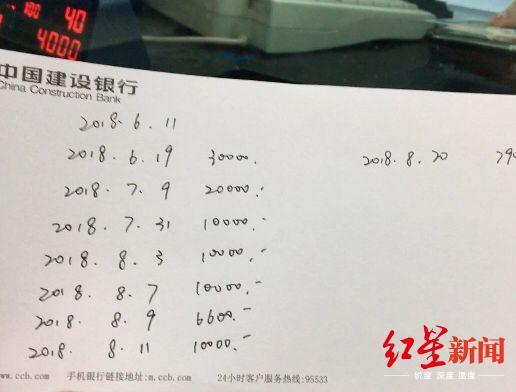 100 40
4000
中国建设银行
China Construction Bank
2018.6.11
2018.6.19 30000.
2018.8.20
2018.7.9 20000.-
2018.7.31 10000.-
2018.8.3 10000.-
2018.8.7 10000.-
2018.8.9 6600.-
2018.8.11 10000.-
www.ccb.com 手机银行链接地址:m.ccb.com 24小时客户服务热线:95533
红星新闻
锐度 深度 温度